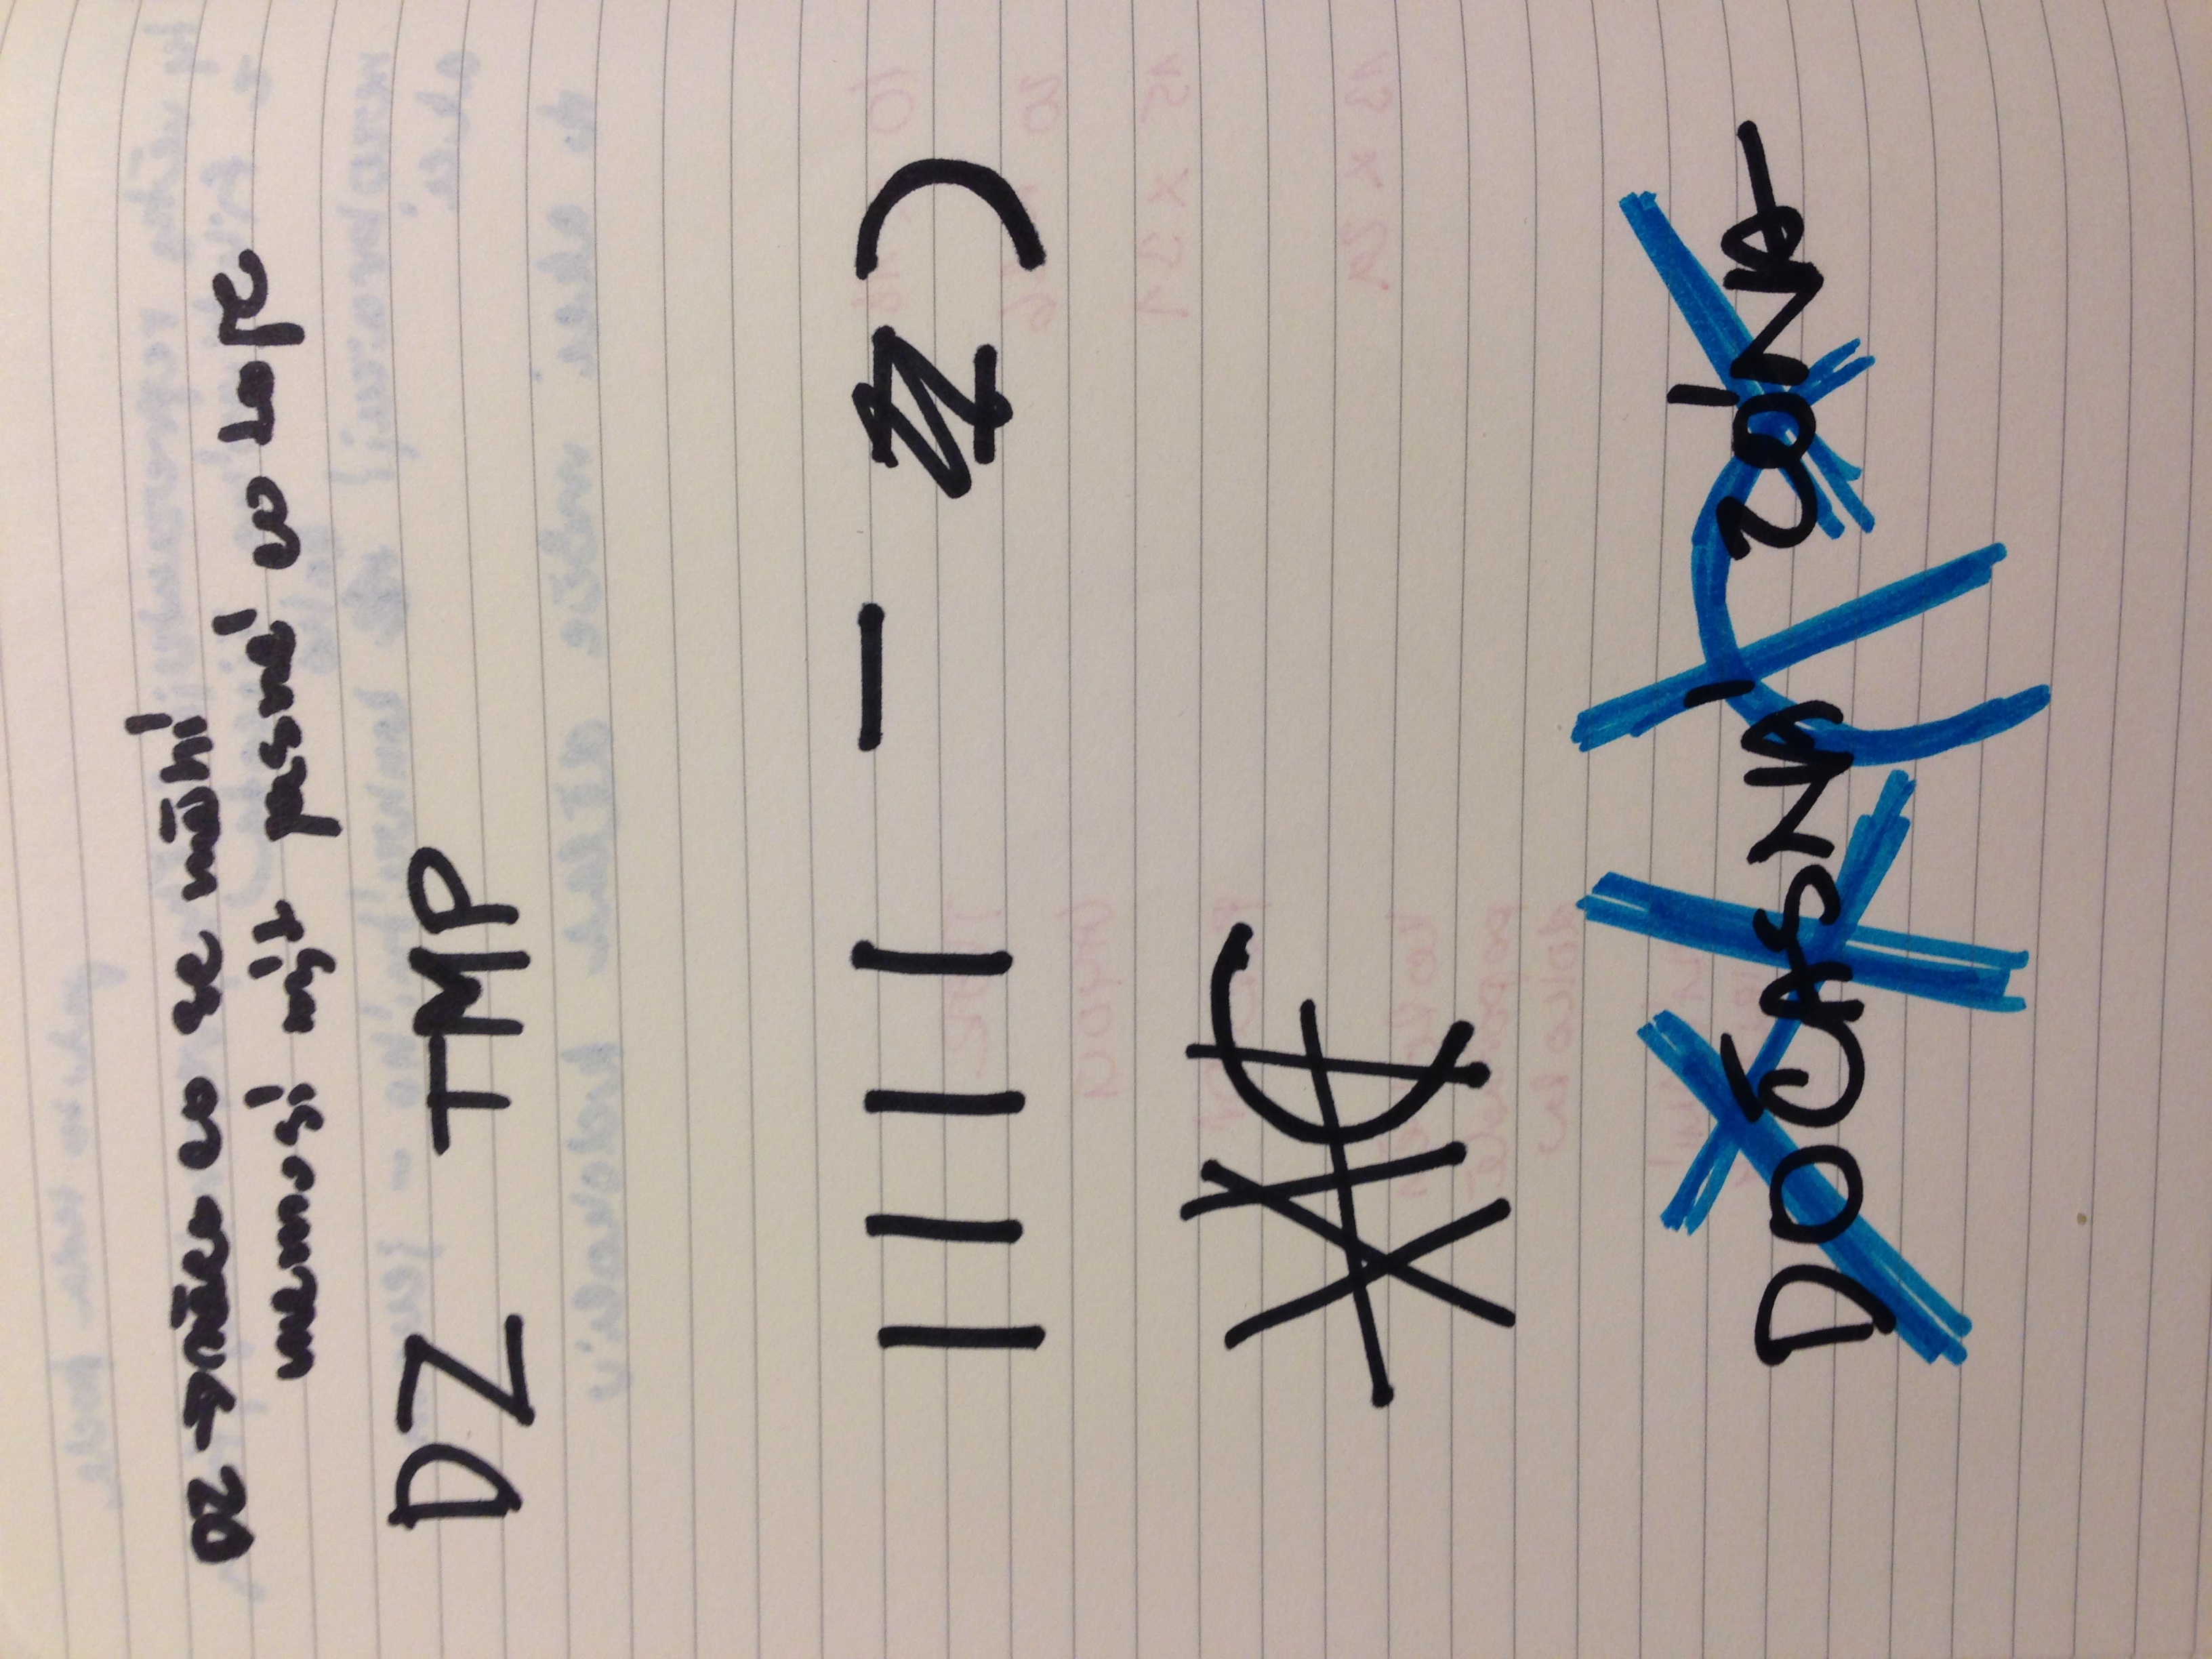 DZ → něco co se mění
nemusí být jasné co to je
DZ TMP
DOČASNÁ ZÓNA